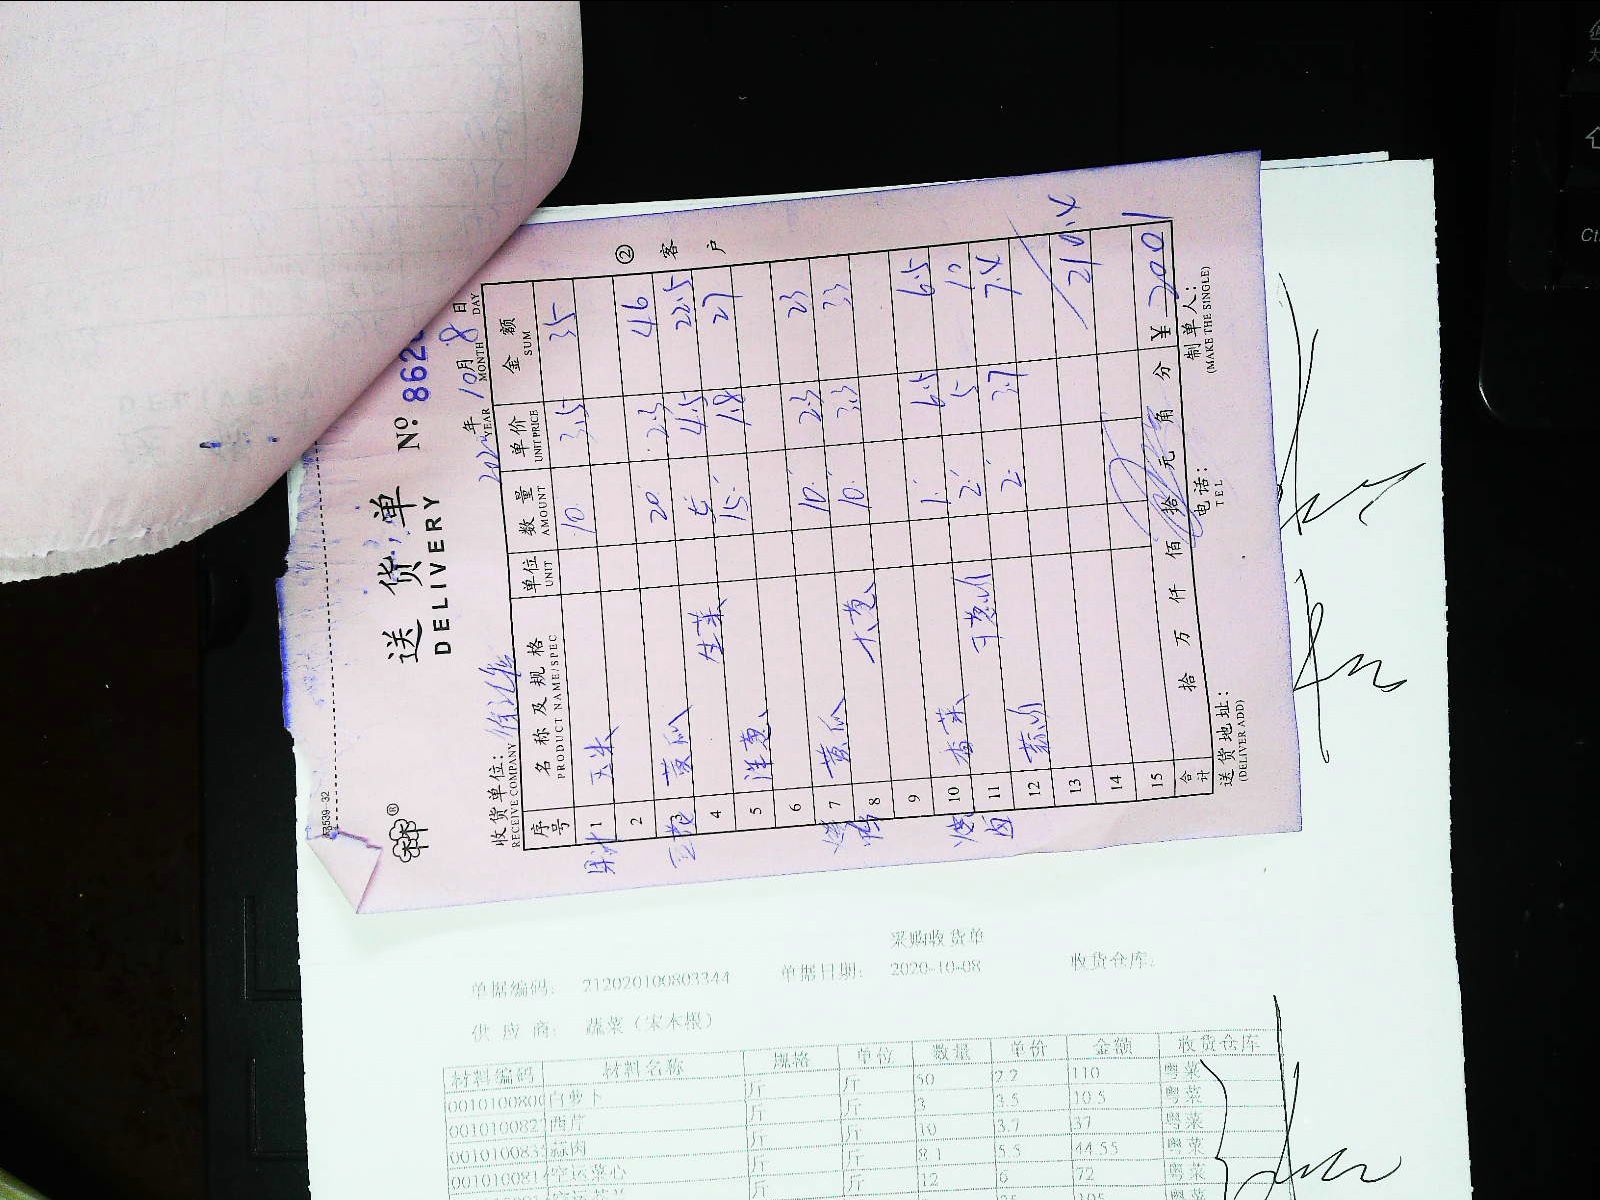 送 货 单
DELIVERY
№ 862
2020年 10月 8日
YEAR MONTH DAY
收货单位：
RECEIVE COMPANY
序号 名称及规格 单位 数量 单价 金额
PRODUCT NAME/SPEC UNIT AMOUNT UNIT PRICE SUM
1 玉米 10 3.5 35
2
3 黄瓜 20 2.3 46
4 生菜 5 4.5 22.5
5 洋葱 15 1.8 27
6
7 黄瓜 10 2.3 23
8 大葱 10 3.3 33
9
10 香菜 1 6.5 6.5
11 干葱肉 2 5 10
12 蒜肉 2 3.7 7.4
13
14 210.4
15
合计 拾 万 仟 佰 拾 元 角 分 ¥ 200
送货地址：
(DELIVER ADD)
电话：
TEL
制单人：
(MAKE THE SINGLE)
② 客户
采购收货单
单据编码： 212020100803344 单据日期： 2020-10-08 收货仓库：
供 应 商： 蔬菜（宋本银）
材料编码 材料名称 规格 单位 数量 单价 金额 收货仓库
0010100800 白萝卜 斤 斤 50 2.2 110 粤菜
001010082 西芹 斤 斤 3 3.5 10.5 粤菜
001010083 蒜肉 斤 斤 10 3.7 37 粤菜
001010081 空运菜心 斤 斤 8.1 5.5 44.55 粤菜
斤 斤 12 6 72 粤菜
Ctrl